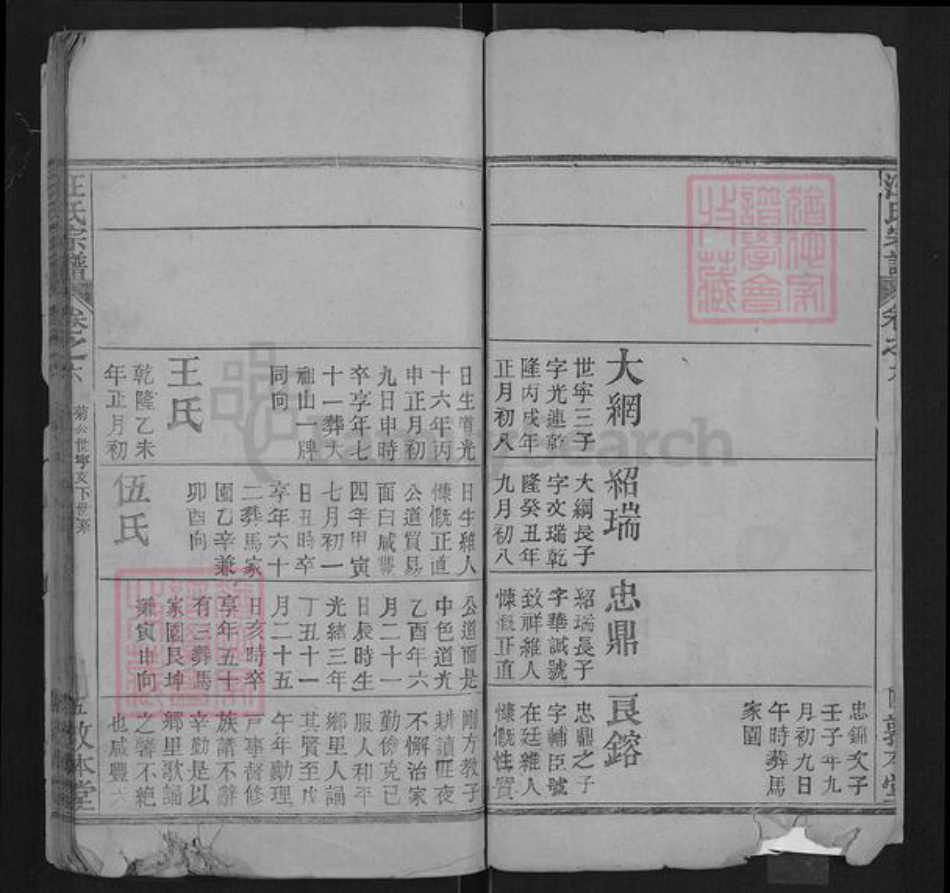 汪氏宗譜
卷之六
敦本堂
大網
世寧三子
字光連乾
隆丙戌年
正月初八
紹瑞
大網長子
字文瑞乾
隆癸丑年
九月初八
忠鼎
紹瑞長子
字華誠號
致祥維人
慷慨正直
忠錦次子
壬子年九
月初九日
午時葬馬
家園
良鎔
忠鼎之子
字輔臣號
在廷維人
慷慨性質
日生道光
十六年丙
申正月初
九日申時
卒享年七
十一葬大
祖山一牌
同向
王氏
乾隆乙未
年正月初
日生維人
慷慨正直
公道貿易
面白咸豐
四年甲寅
七月初一
日丑時卒
享年六十
二葬馬家
園乙辛兼
卯酉向
伍氏
公道面是
中色道光
乙酉年六
月二十一
日辰時生
光緒三年
丁丑十一
月二十五
日亥時卒
享年五十
有三葬馬
家園艮坤
兼寅申向
剛方教子
耕讀匪夜
不懈治家
勤儉克己
服人和平
鄉里人誦
其賢至戊
午年勷理
戶事督修
族譜不辭
辛勤是以
鄉里歌誦
之聲不絕
也咸豐六
汪氏宗譜
卷之六
菊公世寧支下世系
五
敦本堂
FamilySearch